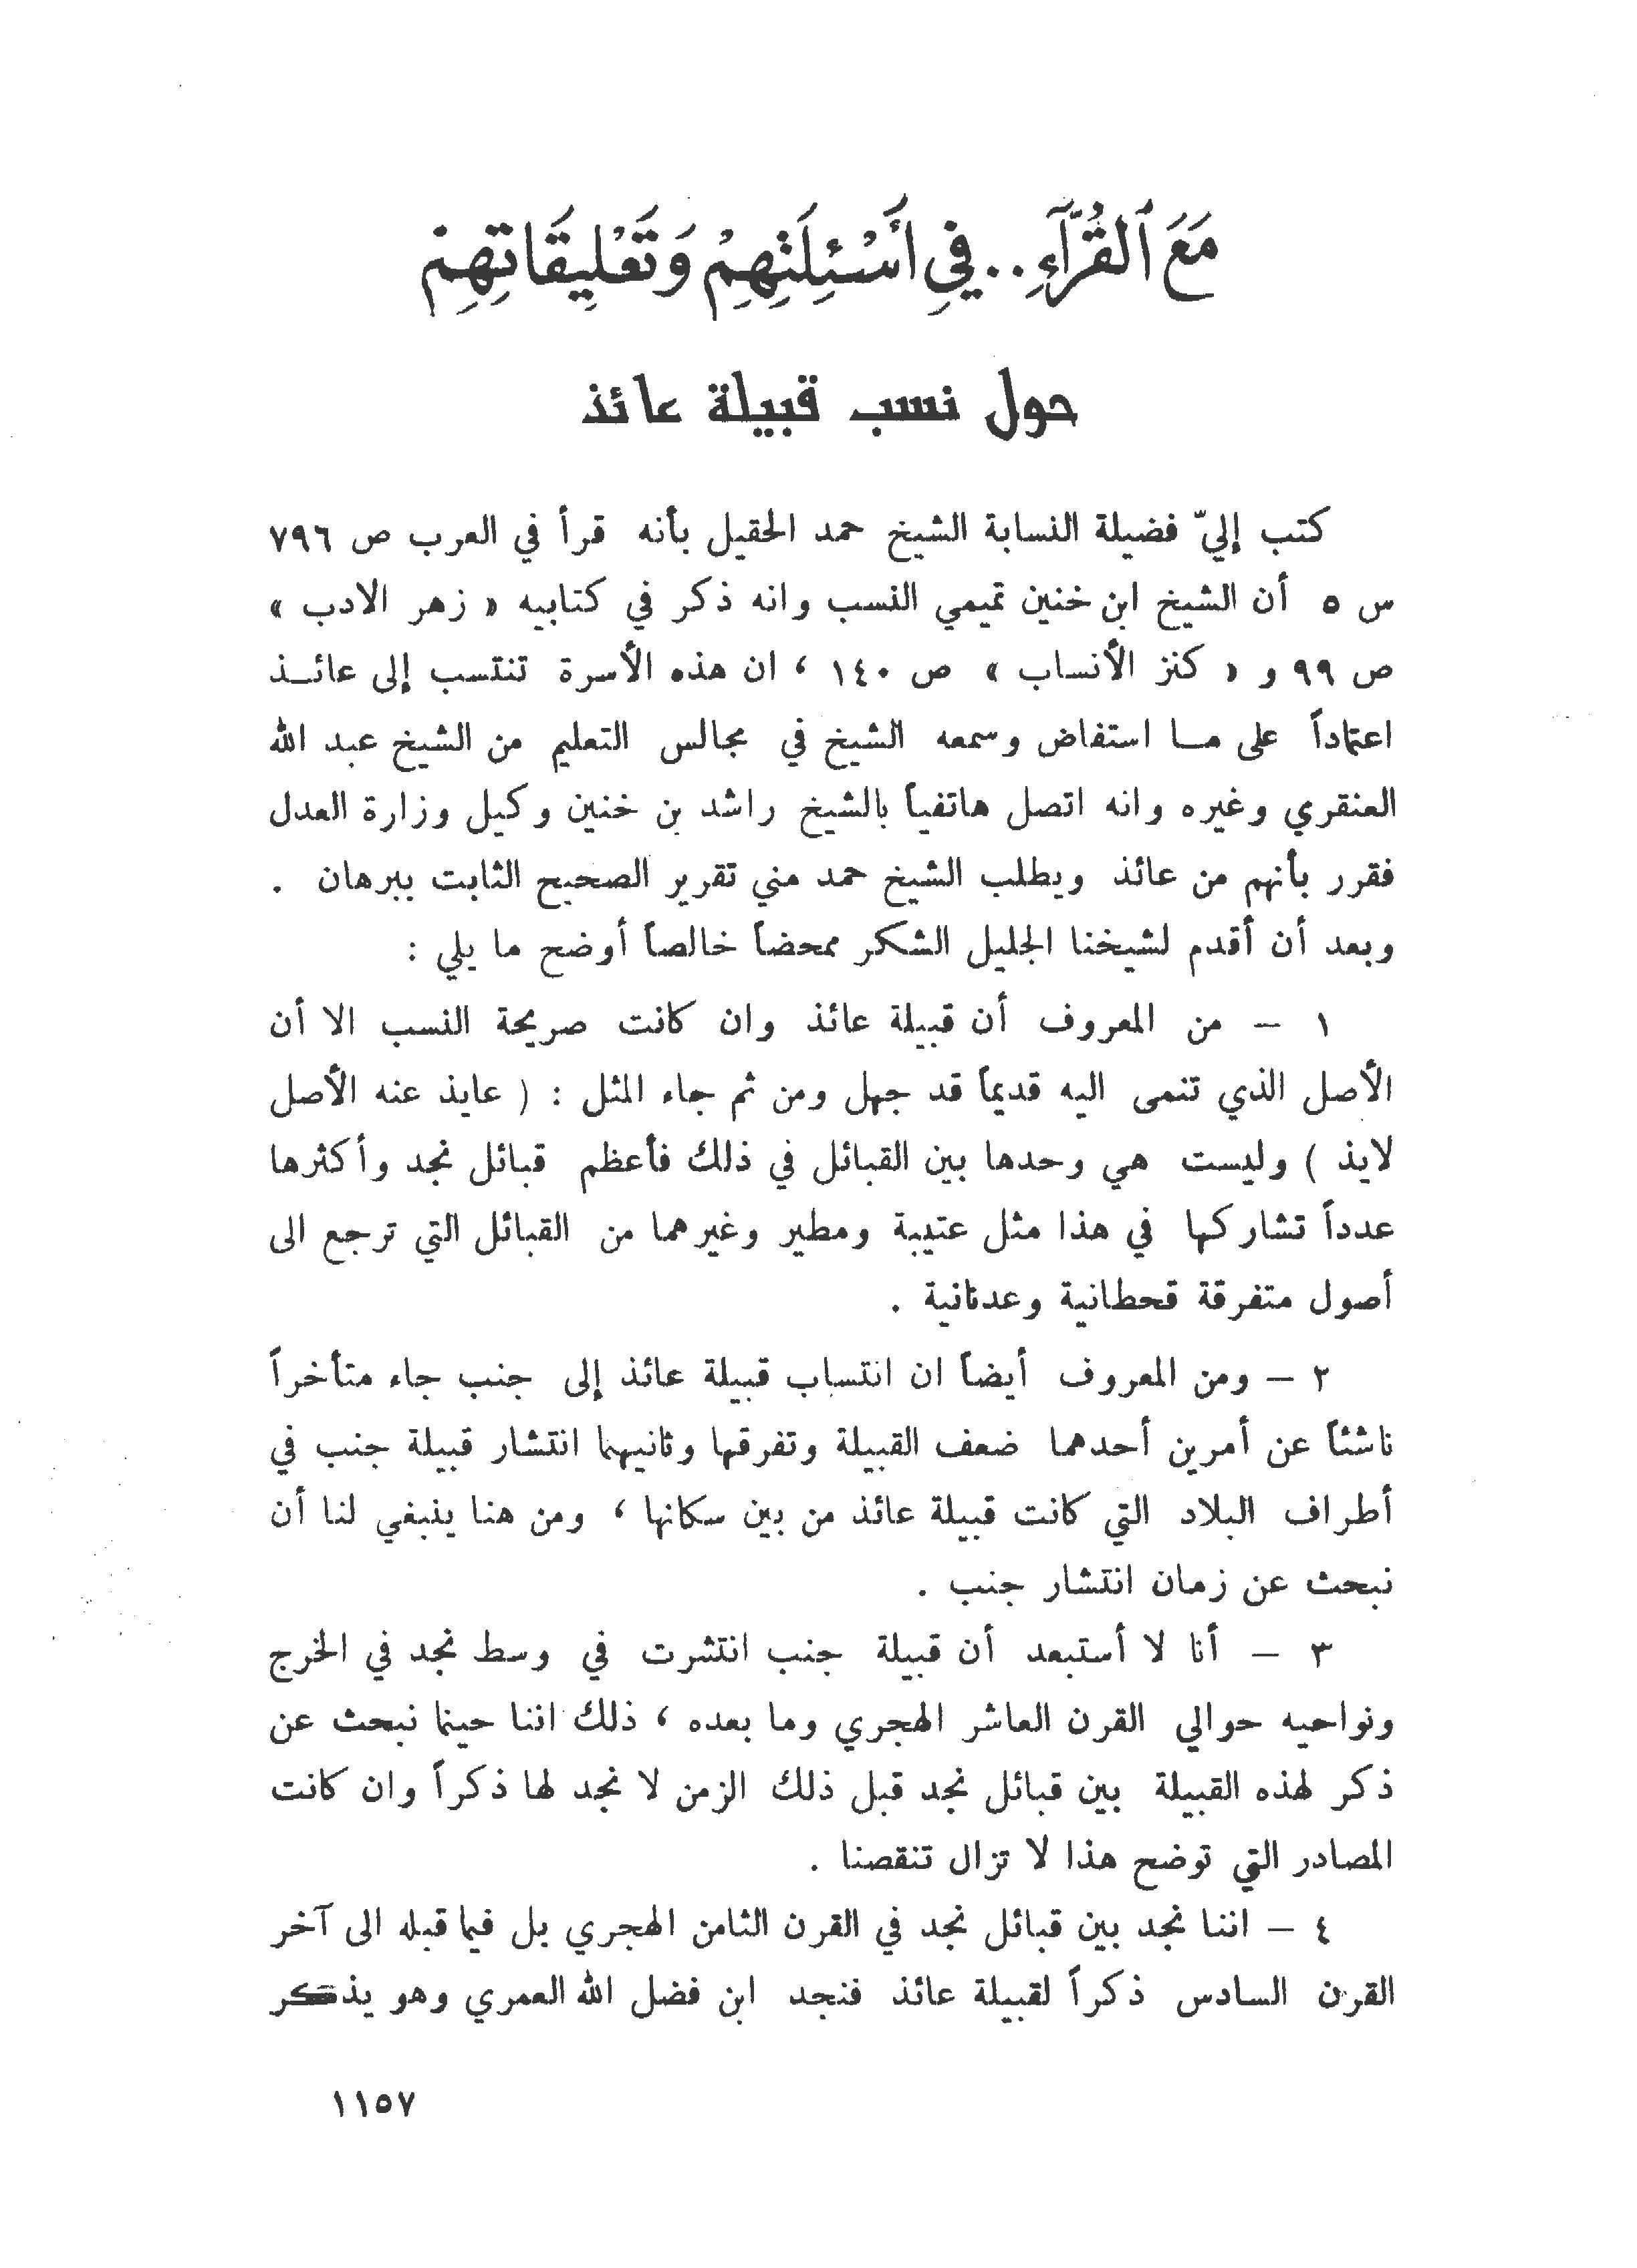 مَعَ ٱلْقُرَّآءِ.. فِي اَسْئِلَتِهِمْ وَتَعْلِيقَاتِهِمْ
حول نسب قبيلة عائذ
كتب إليّ فضيلة النسابة الشيخ حمد الحقيل بأنه قرأ في العرب ص ٧٩٦
س ٥ أن الشيخ ابن خنين تميمي النسب وانه ذكر في كتابيه « زهر الادب »
ص ٩٩ و « كنز الأنساب » ص ١٤٠ ، ان هذه الأسرة تنتسب إلى عائــذ
اعتماداً على مــا استفاض وسمعه الشيخ في مجالس التعليم من الشيخ عبد الله
العنقري وغيره وانه اتصل هاتفياً بالشيخ راشد بن خنين وكيل وزارة العدل
فقرر بأنهم من عائذ ويطلب الشيخ حمد مني تقرير الصحيح الثابت ببرهان .
وبعد أن أقدم لشيخنا الجليل الشكر ممحضاً خالصاً أوضح ما يلي :
١ – من المعروف أن قبيلة عائذ وان كانت صريحة النسب الا أن
الأصل الذي تنمى اليه قديماً قد جهل ومن ثم جاء المثل : ( عايذ عنه الأصل
لايذ ) وليست هي وحدها بين القبائل في ذلك فأعظم قبائل نجد وأكثرها
عدداً تشاركها في هذا مثل عتيبة ومطير وغيرهما من القبائل التي ترجع الى
أصول متفرقة قحطانية وعدنانية .
٢ – ومن المعروف أيضاً ان انتساب قبيلة عائذ إلى جنب جاء متأخراً
ناشئاً عن أمرين أحدهما ضعف القبيلة وتفرقها وثانيهما انتشار قبيلة جنب في
أطراف البلاد التي كانت قبيلة عائذ من بين سكانها ، ومن هنا ينبغي لنا أن
نبحث عن زمان انتشار جنب .
٣ – أنا لا أستبعد أن قبيلة جنب انتشرت في وسط نجد في الخرج
ونواحيه حوالي القرن العاشر الهجري وما بعده ، ذلك اننا حينما نبحث عن
ذكر لهذه القبيلة بين قبائل نجد قبل ذلك الزمن لا نجد لها ذكراً وان كانت
المصادر التي توضح هذا لا تزال تنقصنا .
٤ – اننا نجد بين قبائل نجد في القرن الثامن الهجري بل فيما قبله الى آخر
القرن السادس ذكراً لقبيلة عائذ فنجد ابن فضل الله العمري وهو يذكر
١١٥٧